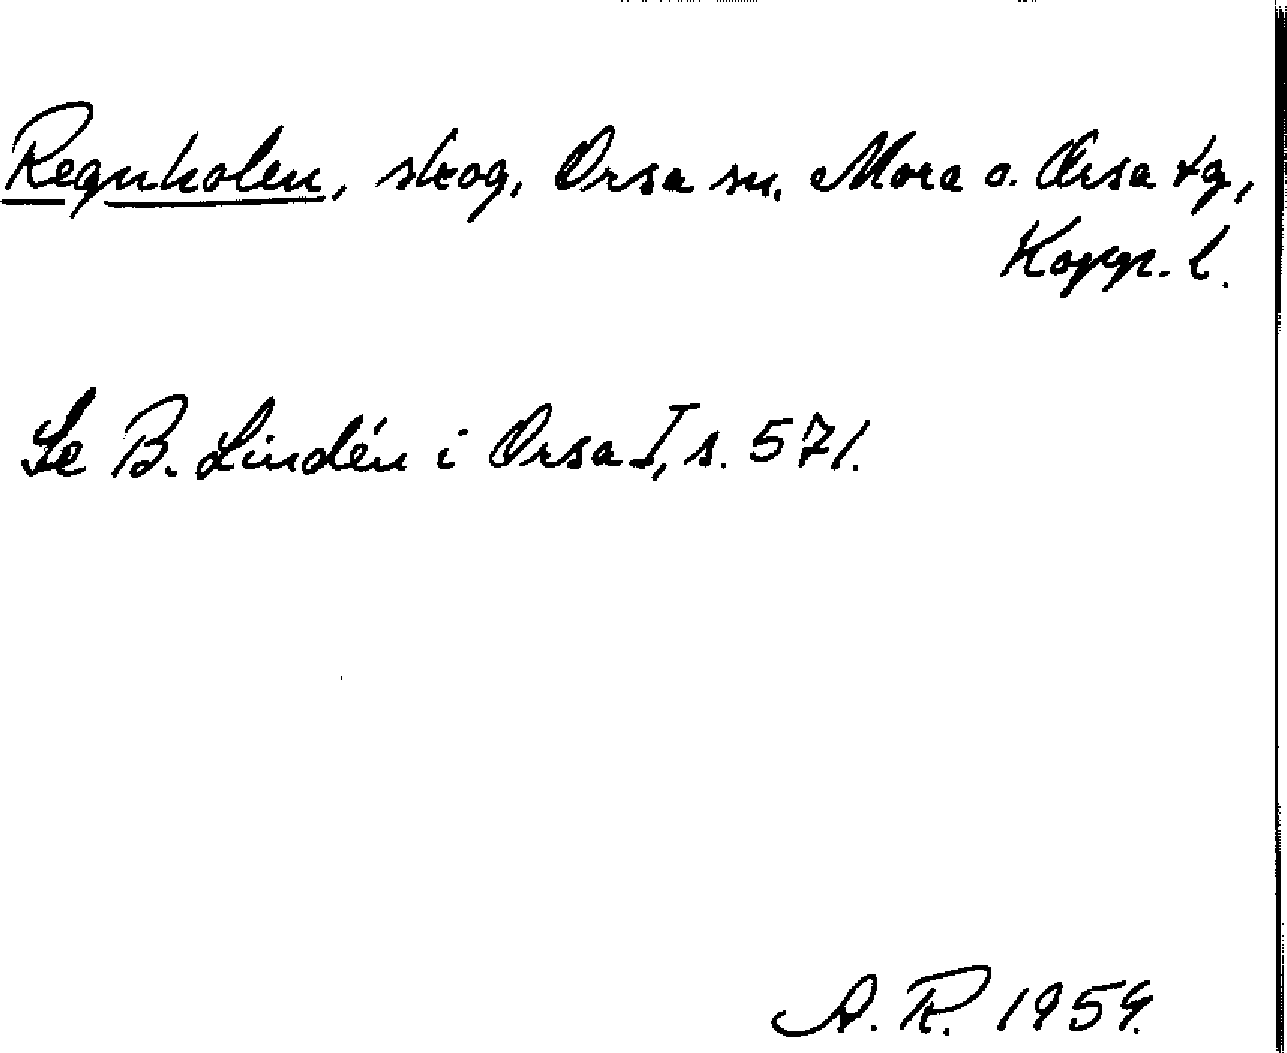 Regnholen, skog, Orsa sn. Mora o. Orsa tg,
Kopp. l.
Se B. Lindén i Orsa I, s. 571.
A. R. 1959.